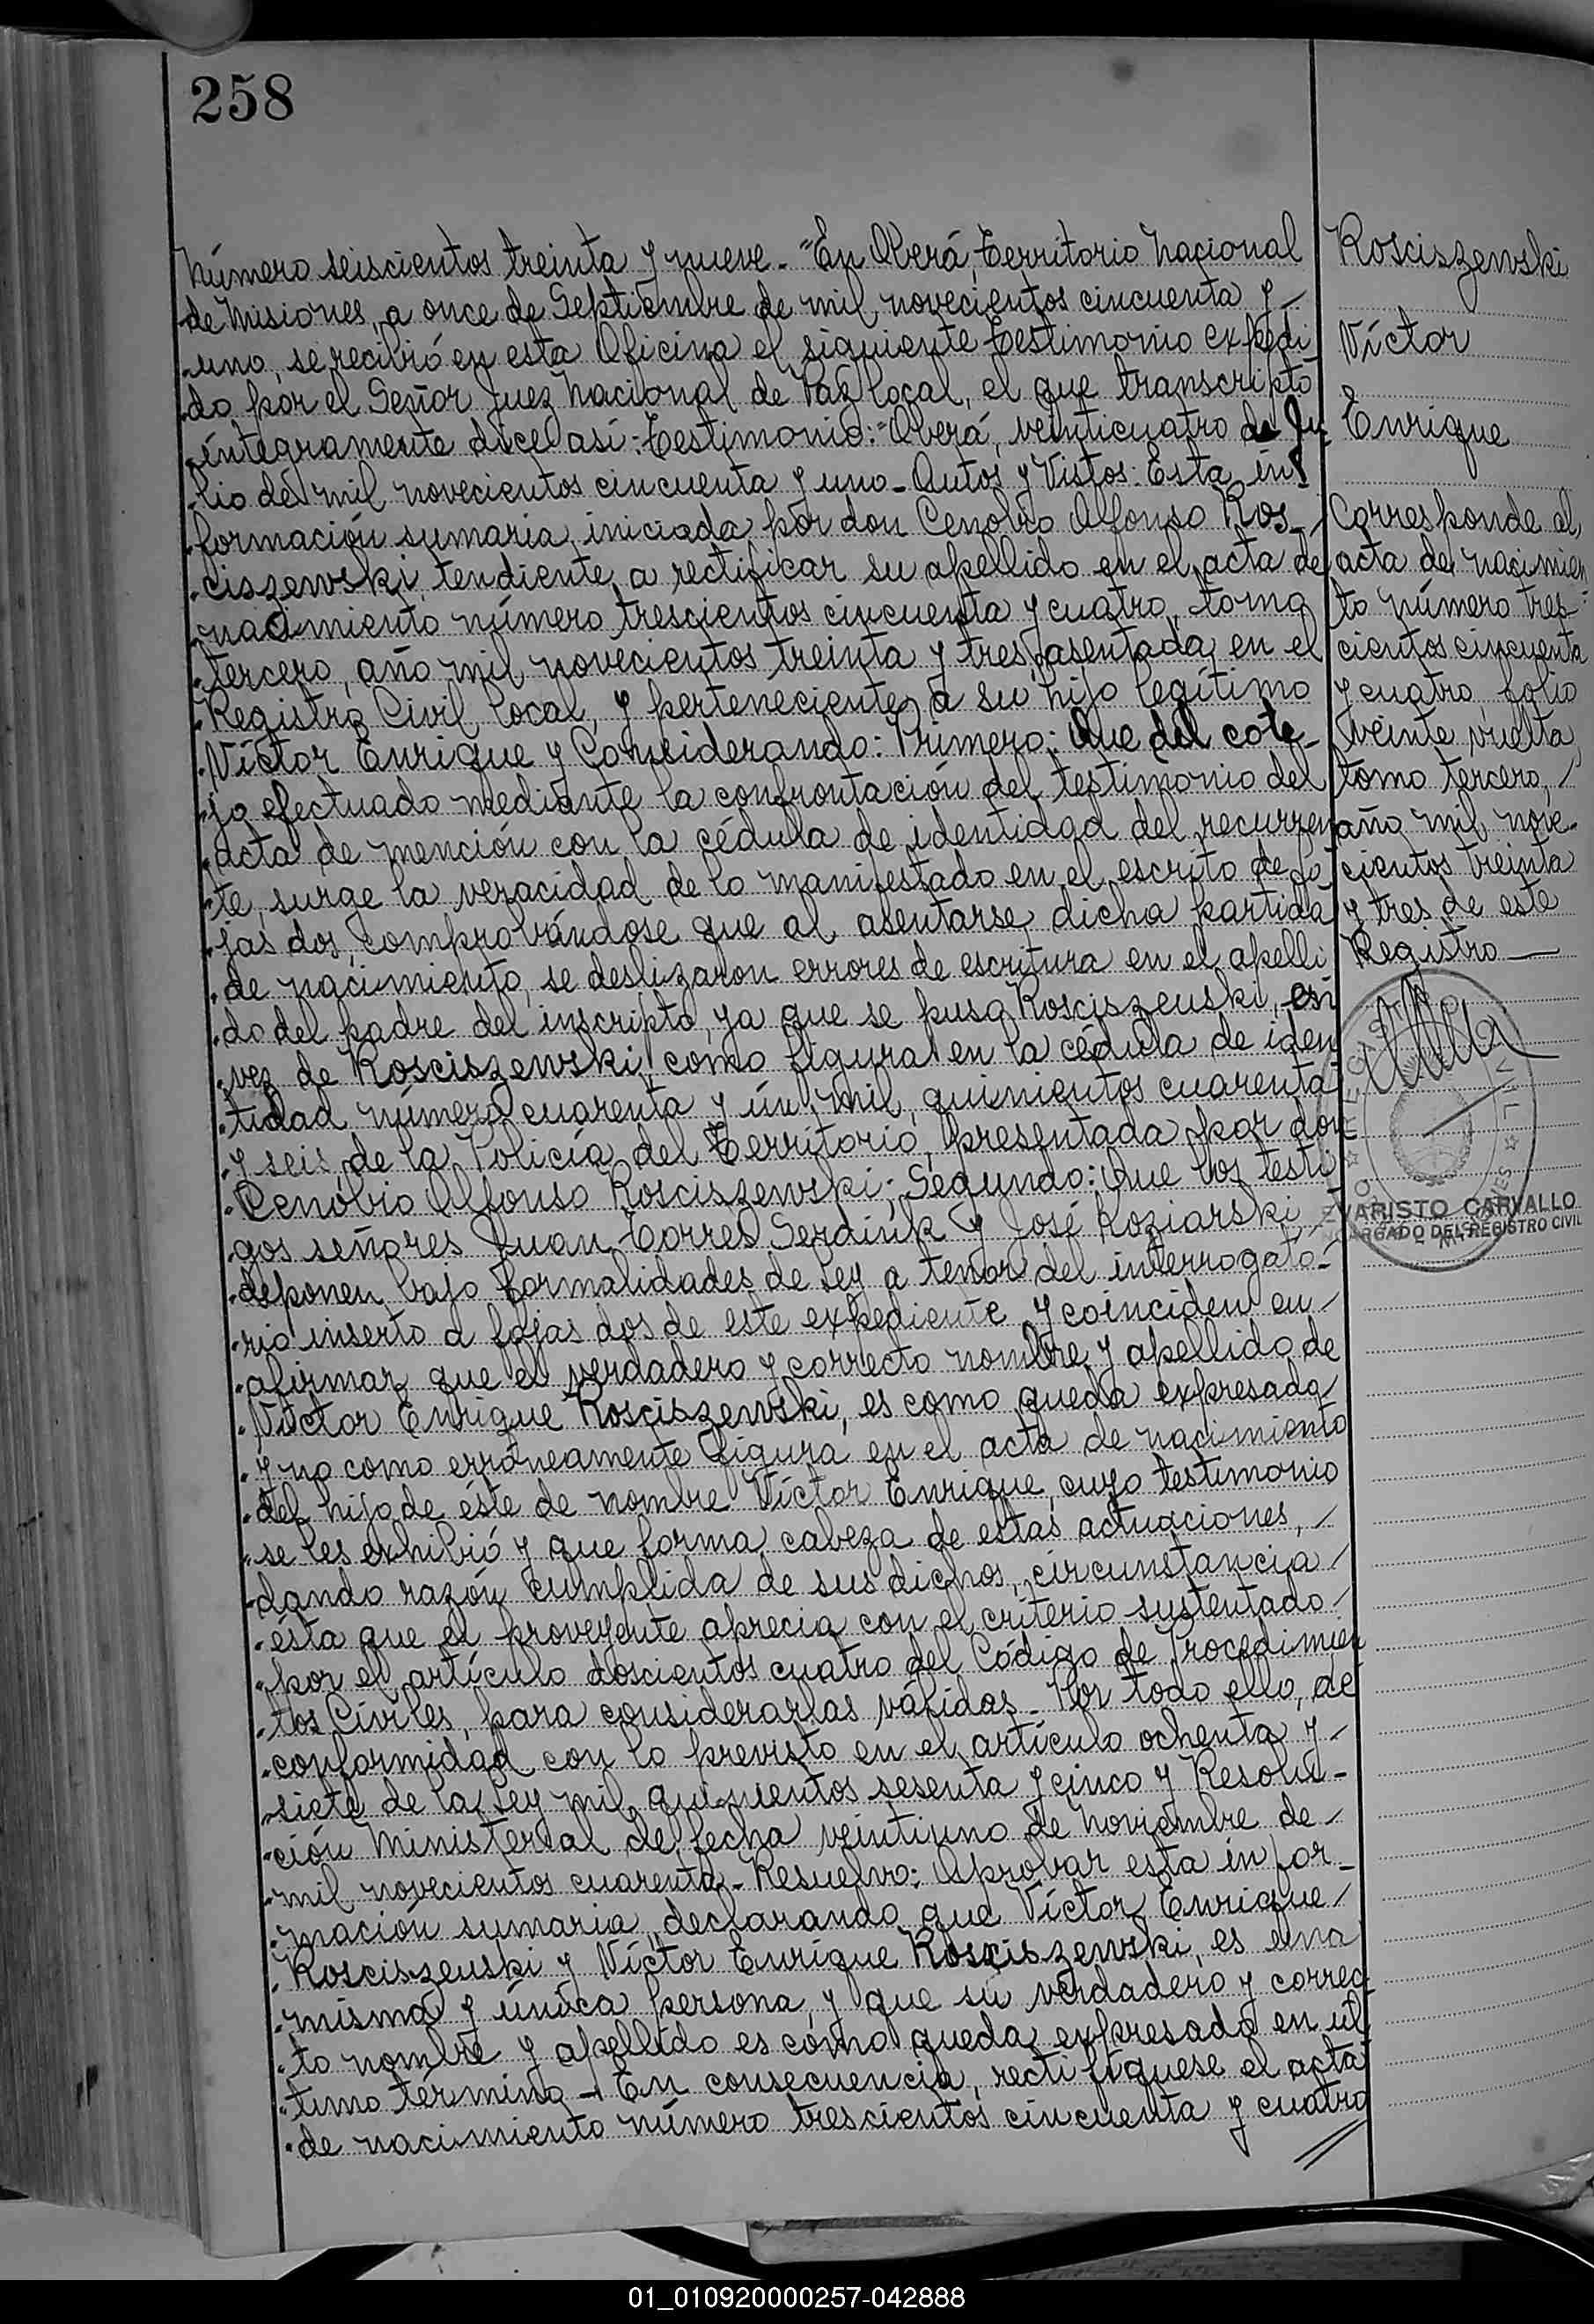 258
Número seiscientos treinta y nueve.- "En Oberá, Territorio Nacional
de Misiones, a once de Septiembre de mil novecientos cincuenta y
uno, se recibió en esta Oficina el siguiente testimonio expedi-
do por el Señor Juez Nacional de Paz local, el que transcripto
íntegramente dice así: Testimonio: "Oberá, veinticuatro de Ju
lio de mil novecientos cincuenta y uno - Autos y Vistos: Esta in-
formación sumaria iniciada por don Cenobio Alfonso Ros-
ciszewski, tendiente a rectificar su apellido en el acta de
nacimiento número trescientos cincuenta y cuatro, tomo
tercero, año mil novecientos treinta y tres, asentada en el
Registro Civil local, y perteneciente a su hijo legítimo
Víctor Enrique y Considerando: Primero: Que del cote-
jo efectuado mediante la confrontación del testimonio del
acta de mención con la cédula de identidad del recurren
te, surge la veracidad de lo manifestado en el escrito de fo-
jas dos, comprobándose que al asentarse dicha partida
de nacimiento, se deslizaron errores de escritura en el apelli-
do del padre del inscripto, ya que se puso Rosciszeuski, en
vez de Rosciszewski como figura en la cédula de iden
tidad número cuarenta y un mil, quinientos cuarenta
y seis de la Policía del Territorio, presentada por don
Cenobio Alfonso Rosciszewski; Segundo: Que los testi-
gos señores Juan Torres Serdiuk y José Koziarski
deponen bajo formalidades de ley a tenor del interrogato-
rio inserto a fojas dos de este expediente y coinciden en
afirmar que el verdadero y correcto nombre y apellido de
Víctor Enrique Rosciszewski, es como queda expresado
y no como erróneamente figura en el acta de nacimiento
del hijo de éste de nombre Víctor Enrique, cuyo testimonio
se les exhibió y que forma cabeza de estas actuaciones,
dando razón cumplida de sus dichos, circunstancia
ésta que el proveyente aprecia con el criterio sustentado
por el artículo doscientos cuatro del Código de Procedimien
tos Civiles, para considerarlas válidas - Por todo ello, de
conformidad con lo previsto en el artículo ochenta y
siete de la Ley mil quinientos sesenta y cinco y Resolu-
ción Ministerial de fecha veintiuno de Noviembre de
mil novecientos cuarenta - Resuelvo: Aprobar esta infor-
mación sumaria, declarando que Víctor Enrique
Rosciszeuski y Víctor Enrique Rosciszewski, es una
misma y única persona, y que su verdadero y correc-
to nombre y apellido es cómo queda expresado en úl
timo término - En consecuencia, rectifíquese el acta
de nacimiento número trescientos cincuenta y cuatro
Rosciszewski
Víctor
Enrique
Corresponde al
acta de nacimien
to número tres-
cientos cincuenta
y cuatro, folio
veinte vuelta,
tomo tercero,
año mil nove-
cientos treinta
y tres de este
Registro
EVARISTO CARVALLO
ENCARGADO DEL REGISTRO CIVIL
01_010920000257-042888